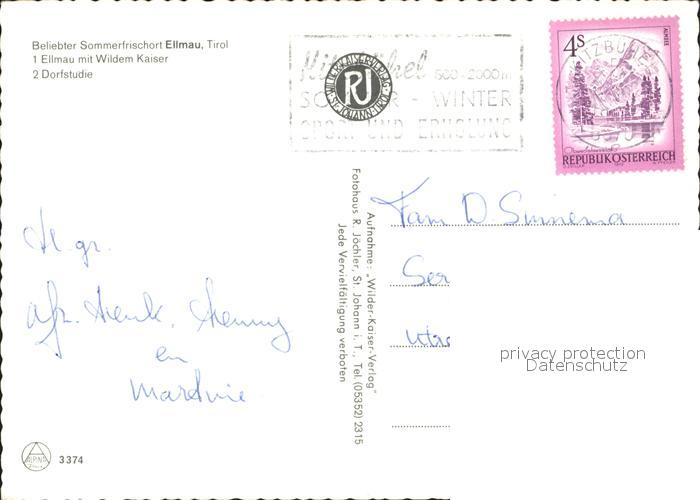 Beliebter Sommerfrischort Ellmau, Tirol
1 Ellmau mit Wildem Kaiser
2 Dorfstudie
Kitzbühel 800-2000m
SOMMER - WINTER
SPORT UND ERHOLUNG
WILDER-KAISER-VERLAG
RJ
ST. JOHANN-TIROL
4s
ALMSEE
KITZBÜHEL
REPUBLIK ÖSTERREICH
Aufnahme: „Wilder-Kaiser-Verlag"
Fotohaus R. Jöchler, St. Johann i. T., Tel. (05352) 2315
Jede Vervielfältigung verboten
Fam D.
Ser
Utre
H. gr.
afz. Henk,
en
ALPINA
3374
privacy protection
Datenschutz